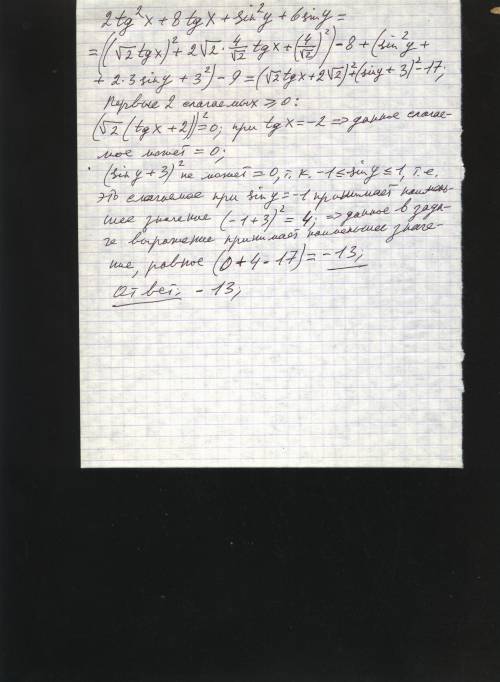 2tg²x + 8tgx + sin²y + 6siny =
= ((√2 tgx)² + 2√2 · 4/√2 tgx + (4/√2)²) - 8 + (sin²y +
+ 2·3 siny + 3²) - 9 = (√2 tgx + 2√2)² + (siny + 3)² - 17;
Первые 2 слагаемых ⩾ 0:
(√2(tgx + 2))² = 0; при tgx = -2 => данное слагае-
мое может = 0;
(siny + 3)² не может = 0, т.к. -1 ≤ siny ≤ 1, т.е.
это слагаемое при siny = -1 принимает наимень-
шее значение (-1+3)² = 4; => данное в зада-
че выражение принимает наименьшее значе-
ние, равное (0 + 4 - 17) = -13;
Ответ: -13;